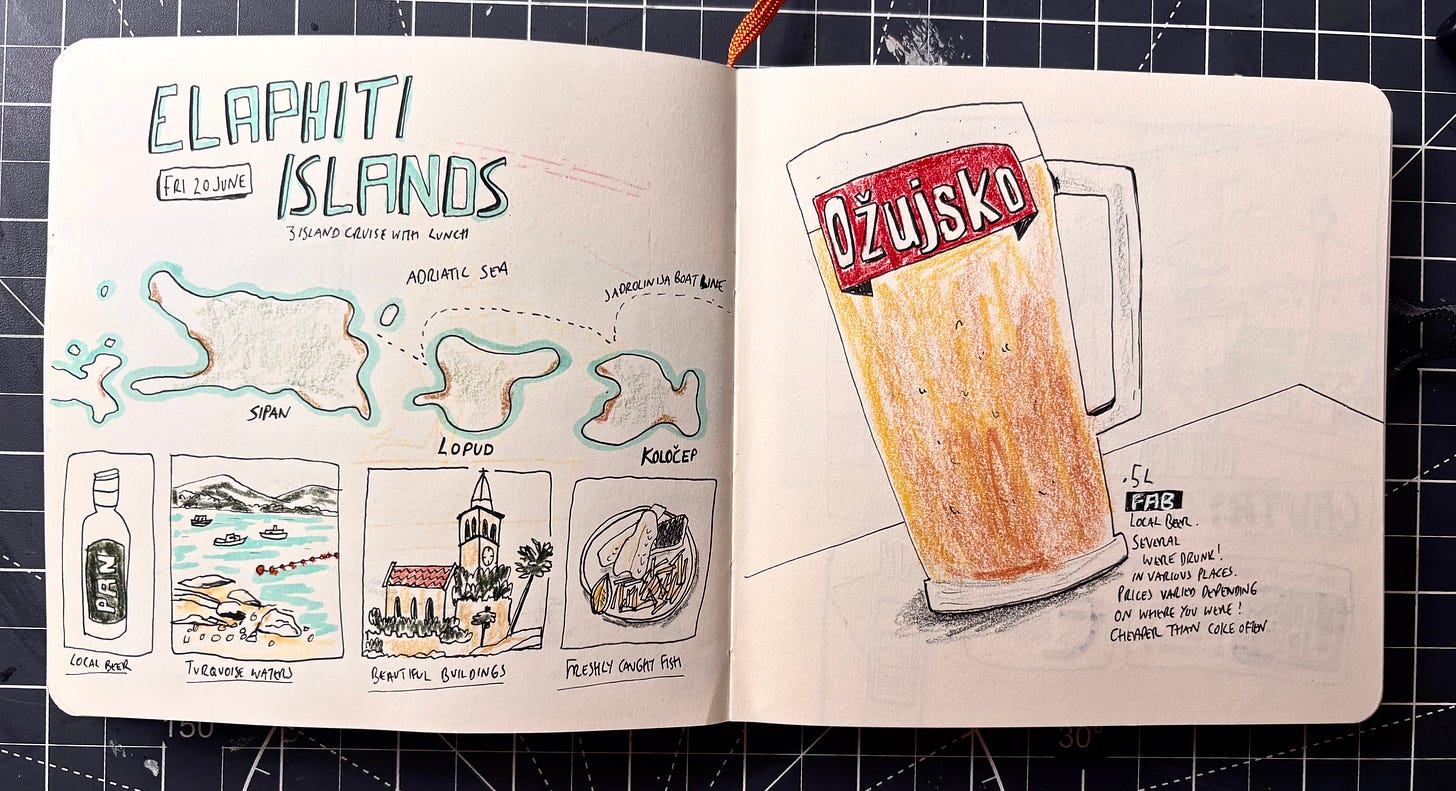 ELAPHITI
ISLANDS
FRI 20 JUNE
3 ISLAND CRUISE WITH LUNCH
ADRIATIC SEA
JADROLINIJA BOAT LINE
SIPAN
LOPUD
KOLOČEP
PAN
LOCAL BEER
TURQUOISE WATERS
BEAUTIFUL BUILDINGS
FRESHLY CAUGHT FISH
Ožujsko
.5L
FAB
LOCAL BEER.
SEVERAL
WERE DRUNK!
IN VARIOUS PLACES.
PRICES VARIED DEPENDING
ON WHERE YOU WERE!
CHEAPER THAN COKE OFTEN
150
30°